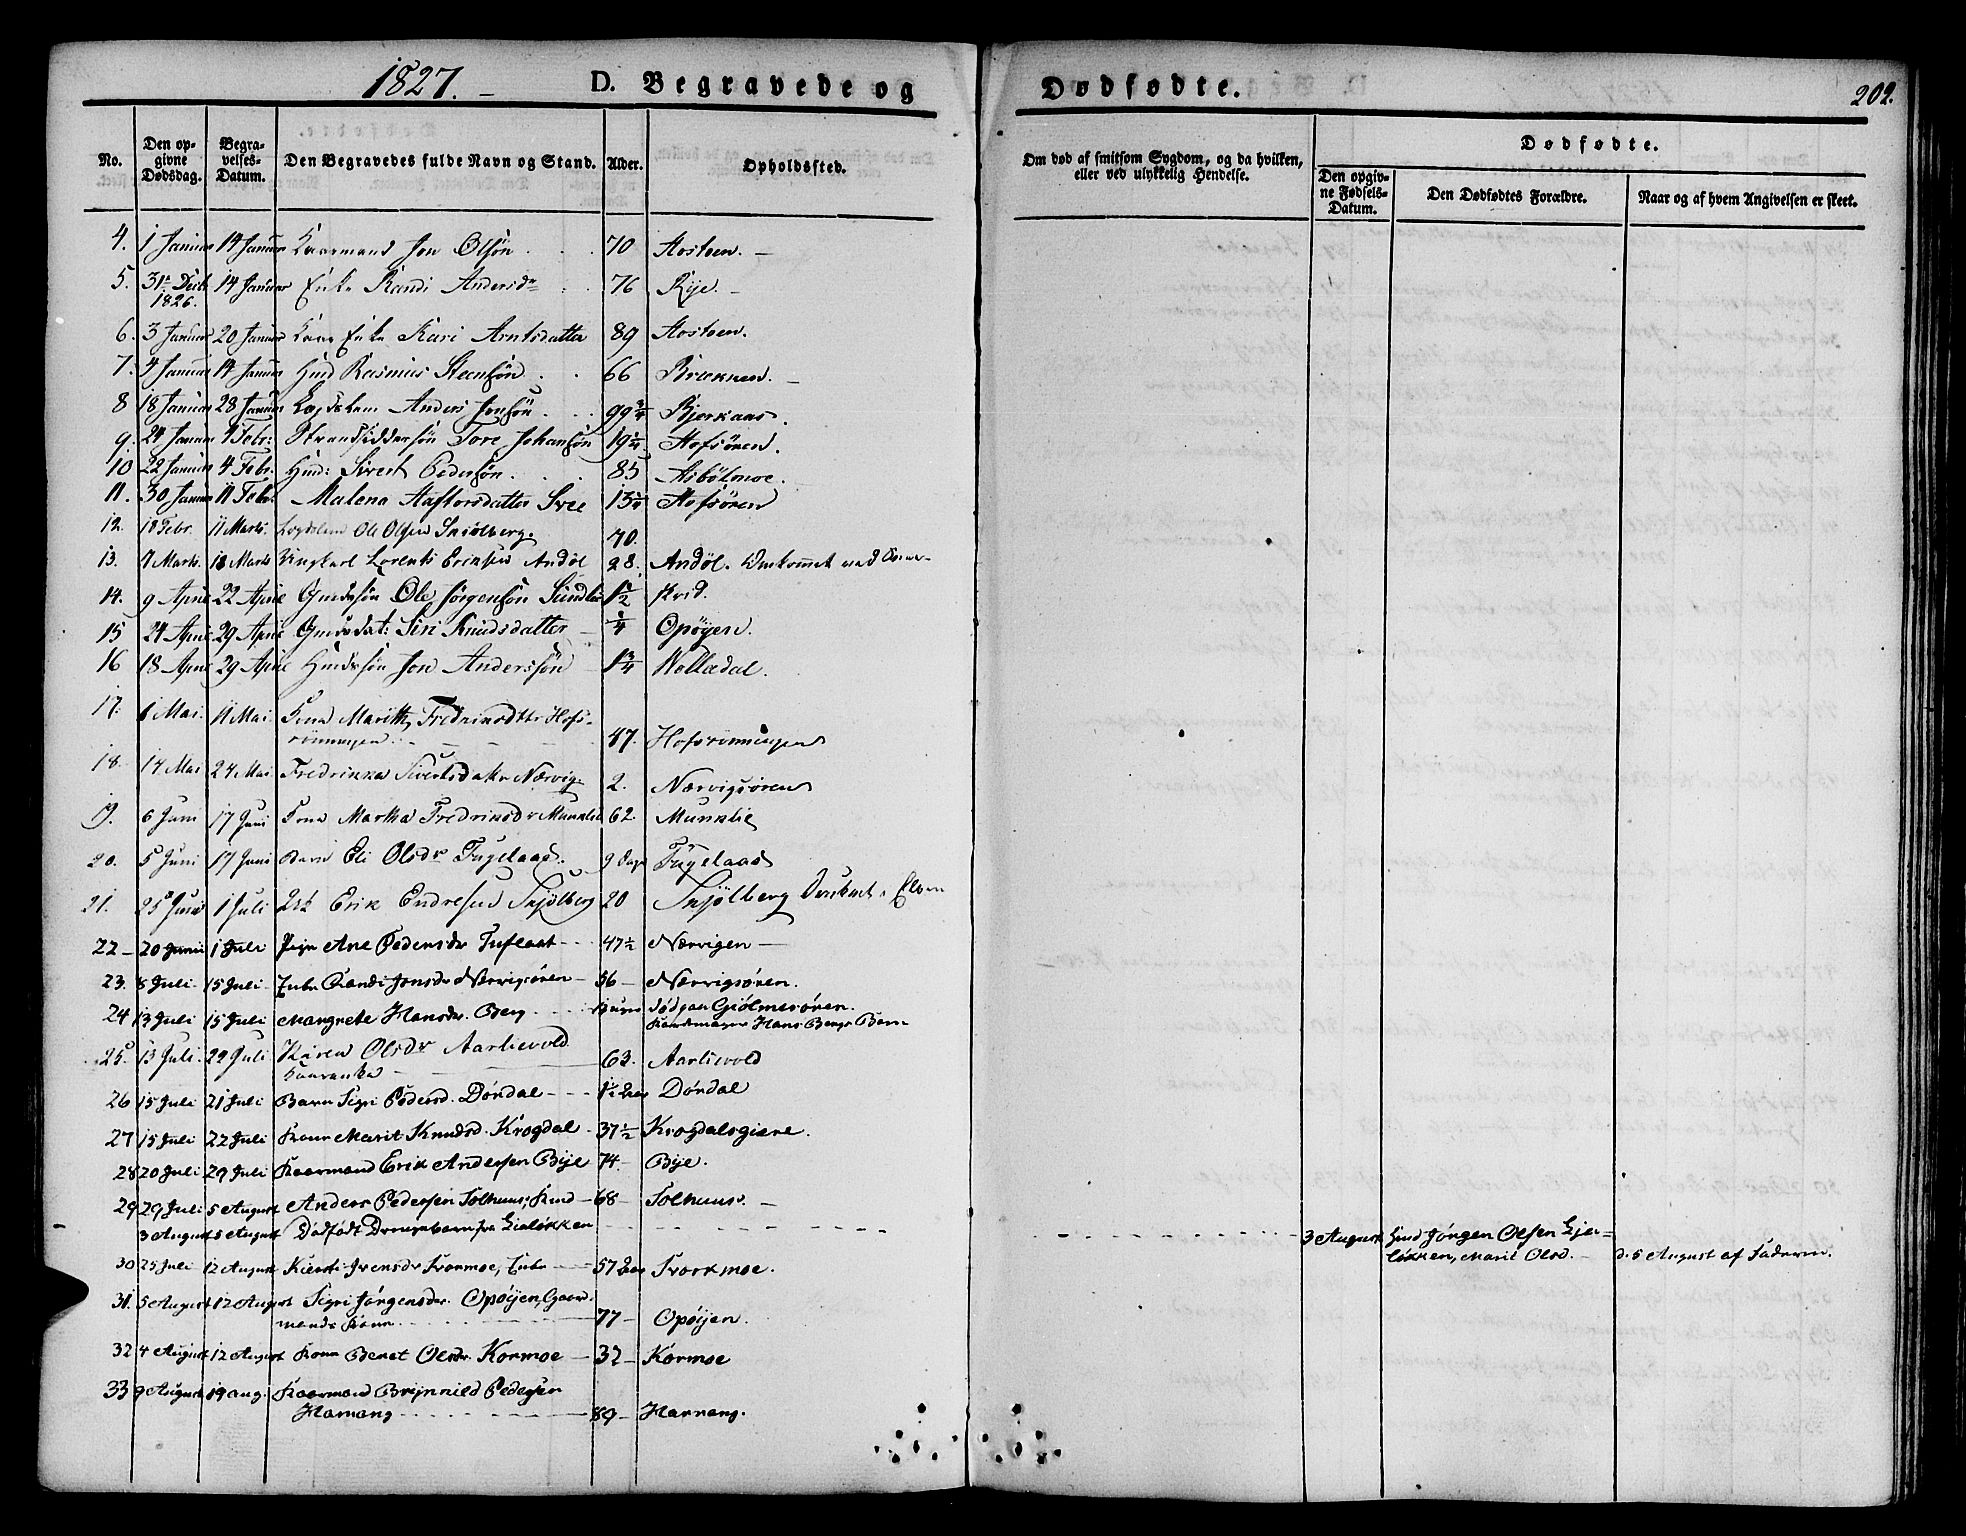 1827. – D. Begravede og Dødfødte. 202.
No. Den opgivne Dødsdag. Begravelses-Datum. Den Begravedes fulde Navn og Stand. Alder. Opholdssted. Om død af smitsom Sygdom, og da hvilken, eller ved ulykkelig Hendelse. Dødfødte.
Den opgivne Fødsels-Datum. Den Dødfødtes Forældre. Naar og af hvem Angivelsen er skeet.
4. 1 Januar 14 Januar Jon Olsøn 70
5. 31te Decb. 14 Januar Enke Randi Andersdr 76 Rije. –
1826.
6. 3 Januar 20 Januar Enke Kari Arntsdatter 89
7. 4 Januar 14 Januar Huusmd Rasmus Steensøn 66 Brækken. –
8 18 Januar 28 Januar Lægdslem Anders Jonsøn 99 3/4 Bjerkaas.
9. 24 Januar 4 Febr: Strandsiddersøn Tore Johansøn 19 1/4 Hofsøren.
10 22 Januar 4 Febr. Huusm: Sivert Pedersøn 85 Asbølmoe.
11. 30 Januar 11 Febr. Malena Haftorsdatter Svee 13 1/4 Hofsøren
12. 18 Febr. 11 Marts. Lægdslem Ole Olsen Sniølberg. 70.
13. 7 Marts. 18 Marts Ungkarl Lorents Eriksen Andøl 28. Andøl. Omkommet ved
14. 9 April 22 April Gmdssøn Ole Jørgensøn 1 1/2
15 24 April 29 April Gmdsdat: Siri Knudsdatter – 1/4 Opøyen.
16 18 April 29 April Huusmdssøn Jon Anderssøn 1 3/4
17. 6 Mai. 11 Mai. Kone Marith Fredriksdtr Hofs-
rönningen 47. Hofsrönningen
18. 14 Mai 24 Mai. Fredrikka Sivertsdatr Nærvig 2. Nærvigsøren
19. 6 Juni 17 Juni Kone Martha Fredriksdr Munklie 62. Munklie
20. 5 Juni 17 Juni Barn Eli Olsdr Fugelaas. 9 Dage Fugelaas
21. 25 Juni 1 Juli Erik Endresen Snjölberg 20 Snjölberg Elven
22 – 20 Junii 1 Juli Pige Ane Pedersdr Tuflaat 47 1/2 Nærvigen –
23. 8 Juli 15 Juli Enke Randi Jonsdr Nærvigsören – 56 – Nærvigsören.
24 13 Juli 15 Juli Margrete Hansdr. Berg Gjölmesören.
Hans Bergs Barn
25. 13 Juli 29 Juli Karen Olsdr Aarlivold 63. Aarlivold
26 15 Juli 21 Juli Barn Sigri Pedersd. Dördal 1 1/2 Aar Dördal
27 15 Juli 22 Juli Kone Marit Knudsd. Krogdal 37 1/2 Krogdalsgjere.
28 20 Juli 29 Juli Kaarmand Erik Andersen Bije 74 – Bije.
29 29 Juli 5 August Anders Pedersen Solhuus, Huusmd – 68 – Solhuus. –
3 August 5 August Dödfödt Drengebarn fra Gjelökken 3 August Huusmd Jörgen Olsen Gje-
lökken, Marit Olsd. – d. 5 August af Faderen.
30 25 Juli 12 August Kiersti Jensdr Svorkmoe, Enke 57 Aar Svorkmoe.
31. 5 August 12 August Sigri Jörgensdr. Opöijen, Gaard-
mands Kone 77 – Opöijen.
32 4 August 12 August Kone Beret Olsdr. Kormoe – 32 – Kormoe
33 9 August 19 aug. Kaarmand Brynnild Pedersen
Harnang 89 – Harnang.